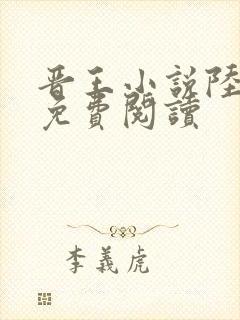 晋王小說陸
免費閱讀
李義虎